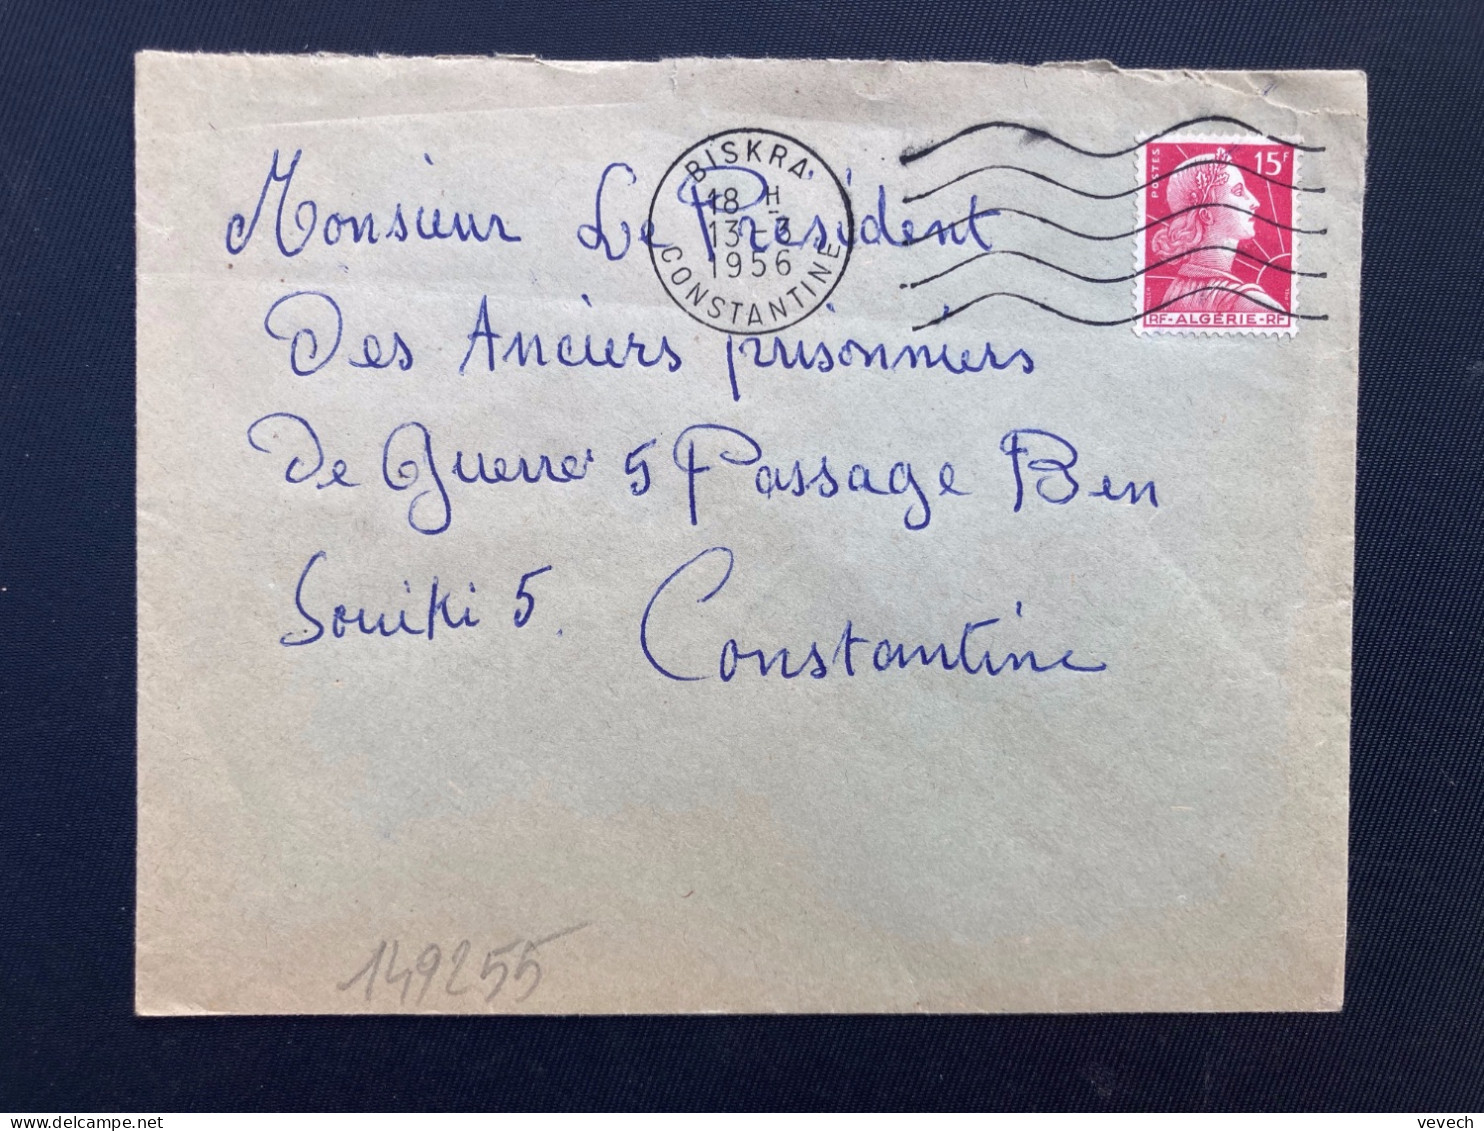 BISKRA
18 H
13-3
1956
CONSTANTINE
POSTES
15F
RF-ALGERIE-RF
Monsieur Le Président
Des Anciers prisonniers
De Guerre 5 Passage Ben
Souiki 5. Constantine
149255
vevech